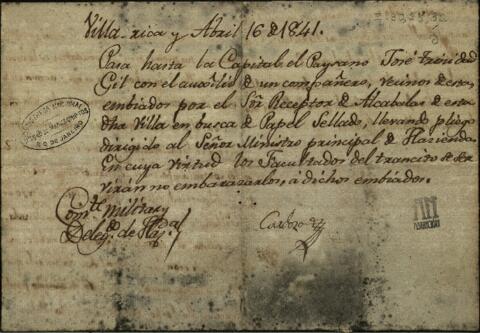 Villa rica y Abril 16 de 1841.
Pasa hasta la Capital el Paysano José Trinidad
Gil con el auxilio de un compañero, vecinos de esta,
embiados por el Sor Receptor de Alcabalas de esta
dha Villa en busca de Papel Sellado, llevando pliego
dirigido al Señor Ministro principal de Hazienda.
En cuya virtud los Facultados del transito se ser
virán no embarazarlos, á dichos embiados.
Comte. militar y
Deleg. de Hda.
Cardozo
RIO DE JANEIRO